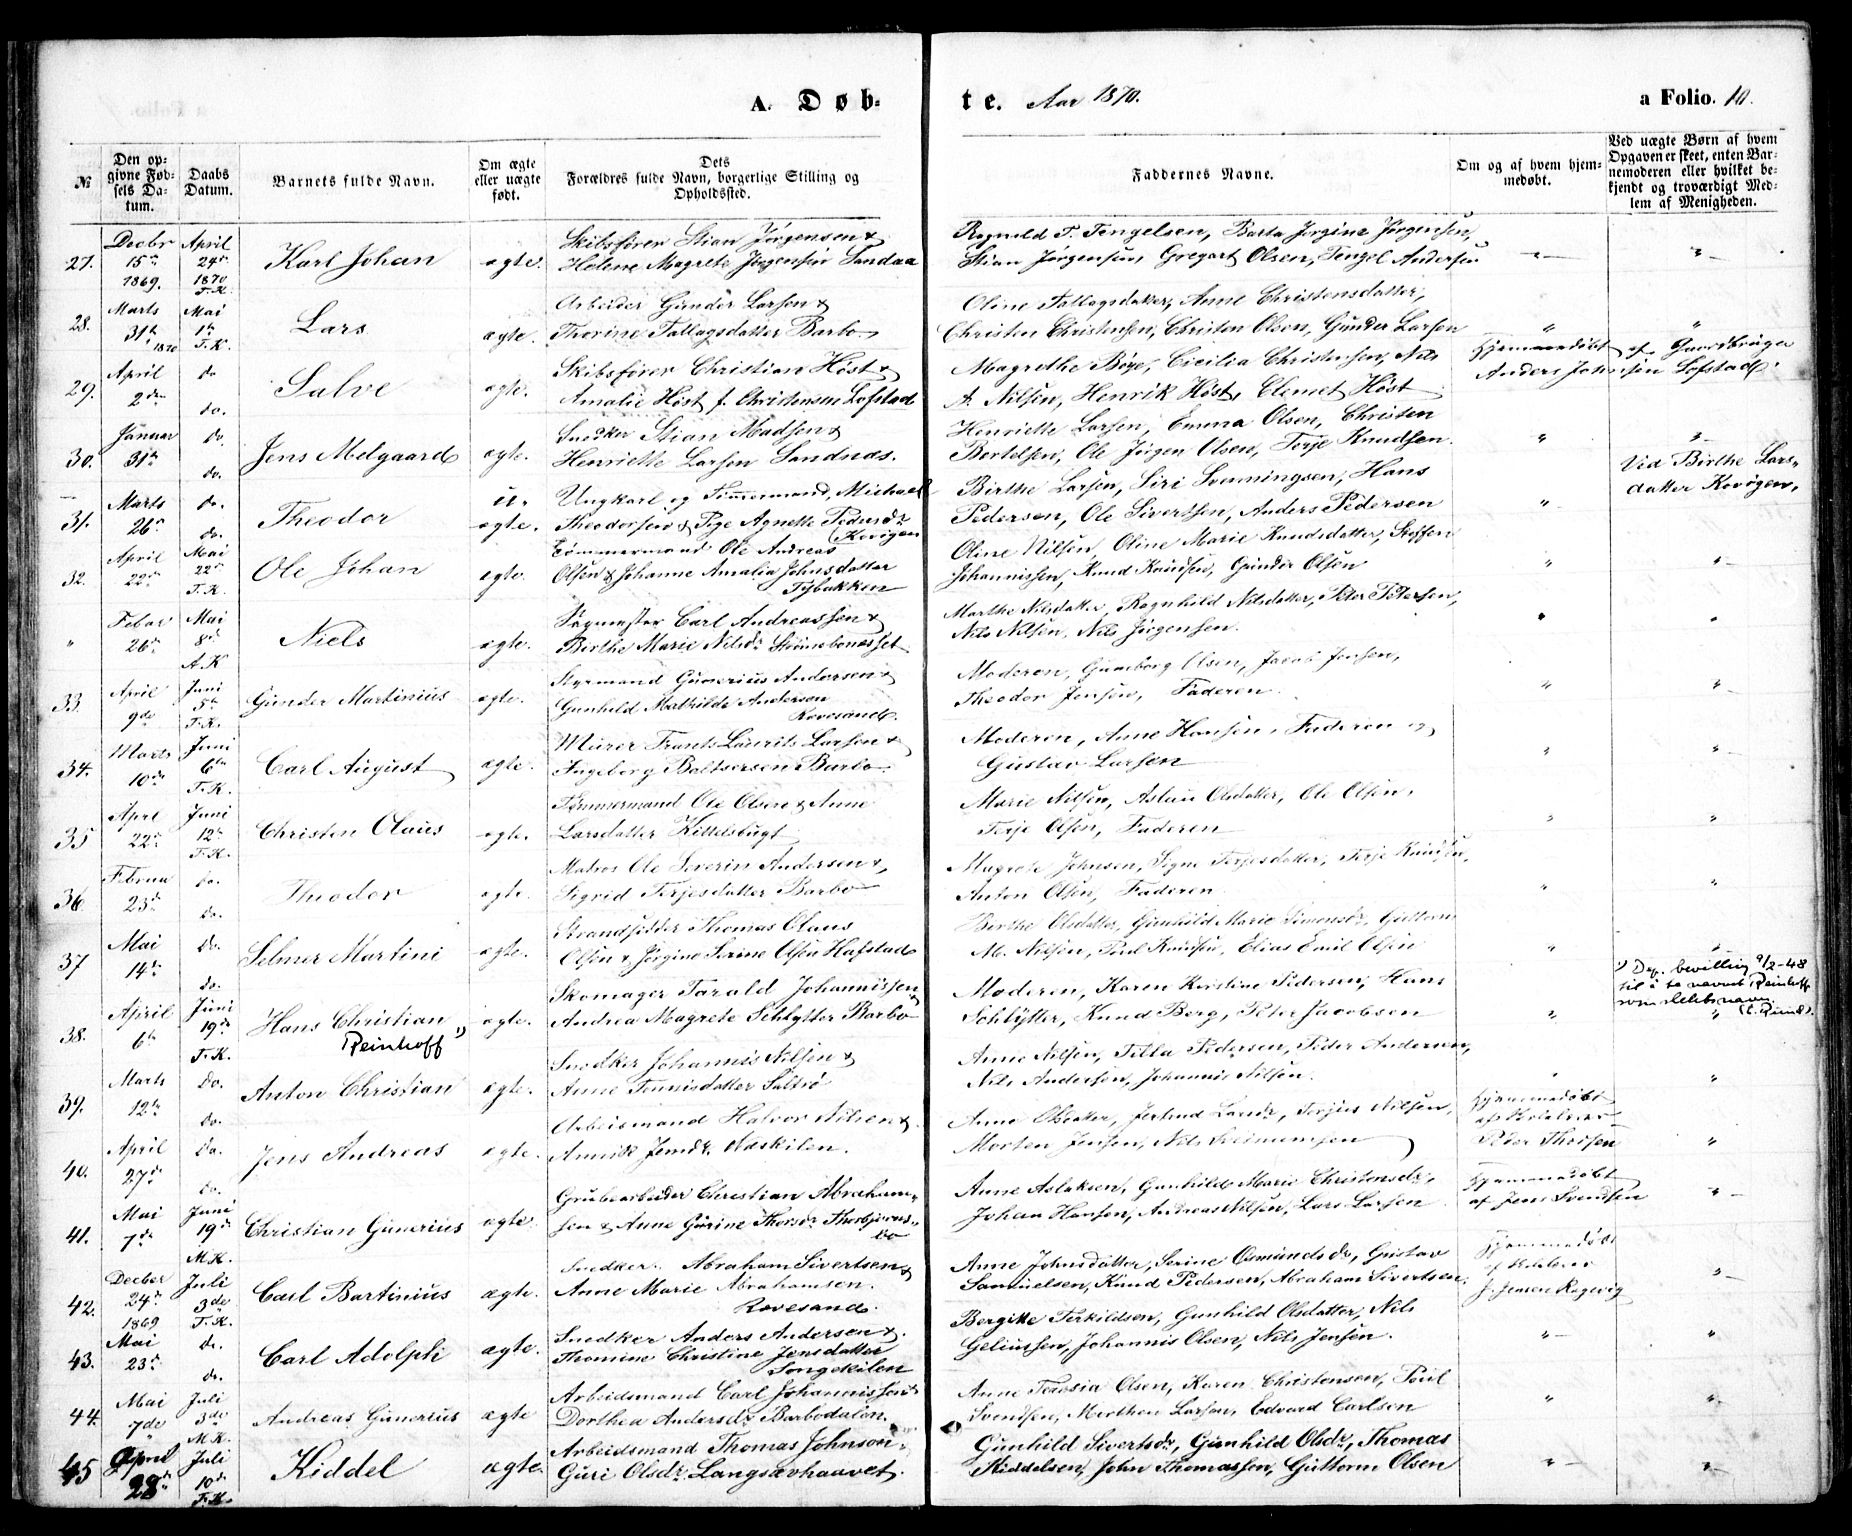 A. Døb-
te. Aar 1870.
a Folio. 10.
№
Den op-
givne Fød-
sels Da-
tum.
Daabs
Datum.
Barnets fulde Navn.
Om ægte
eller uægte
født.
Dets
Forældres fulde Navn, borgerlige Stilling og
Opholdssted.
Faddernes Navne.
Om og af hvem hjem-
medøbt.
Ved uægte Børn af hvem
Opgaven er skeet, enten Bar-
nemoderen eller hvilket be-
kjendt og troværdigt Med-
lem af Menigheden.
27. Decbr 15de 1869. April 24de 1870 T.K. Karl Johan ægte.
Skibsfører Stian Jørgensen &
Helene Magrete Jørgensen Sandaa
Ragnild T. Tengelsen, Berta Jørgine Jørgensen,
Stian Jørgensen, Gregart Olsen, Tengel Andersen
28. Marts 31te 1870 Mai 1ste T.K. Lars ægte.
Arbeider Gunder Larsen &
Thorine Tallagsdatter Barbo
Oline Tallagsdatter, Anne Christensdatter,
Christen Christensen, Christen Olsen, Gunder Larsen
29. April 2den do do. Salve ægte.
Skibsfører Christian Høst &
Amalie Høst f. Christensen Lofstad
Magrethe Bøye, Cicilia Christensen, Nils
A. Nilsen, Henrik Høst, Clemet Høst
Hjemmedøbt af Gaardbruger
Anders Johnsen Lofstad.
30. Januar 31te do. do. Jens Melgaard ægte.
Snedker Stian Madsen &
Henriette Larsen Sandnæs.
Henriette Larsen, Emma Olsen, Christen
Bertelsen, Ole Jørgen Olsen, Terje Knudsen.
31. Marts 26de do. do. Theodor u.ægte.
Ungkarl og Tømmermand, Michael
Theodorsen & Pige Agnette Pedersdr
Kovigen
Birthe Larsen, Siri Svenningsen, Hans
Pedersen, Ole Sivertsen, Anders Pedersen
Ved Birthe Lars-
datter Kovigen,
32. April 22de Mai 22de T.K. Ole Johan ægte.
Tømmermand Ole Andreas
Olsen & Johanne Amalia Johnsdatter
Tybakken
Oline Nilsen, Oline Marie Knudsdatter, Steffen
Johannissen, Knud Knudsen, Gunder Olsen
" Febar 26de Mai 8de A.K Niels ægte.
Sagmester Carl Andreassen &
Birthe Marie Nilsdr Strømsbonesset
Marthe Nilsdatter, Ragnhild Nilsdatter, Peter Petersen,
Nils Nilsen, Nils Jørgensen.
33. April 9de Juni 5te T.K. Gunder Martinius ægte.
Styrmand Gunerius Andersen &
Gunhild Mathilde Andersen
Revesand.
Moderen, Guneborg Olsen, Jacob Jensen,
Theodor Jensen, Faderen.
34. Marts 10de Juni 6te T.K. Carl August ægte.
Murer Frants Laurits Larsen &
Ingeborg Baltsersen Barbo
Moderen, Anne Hansen, Faderen og
Gustav Larsen
35 Aprl 22de Juni 12te T.K. Christen Olaus ægte.
Tømmermand Ole Olsen & Anne
Larsdatter Kittelsbugt
Marie Nilsen, Aslau Olsdatter, Ole Olsen,
Terje Olsen, Faderen
36 Februa 23de do. do. Theodor ægte.
Matros Ole Severin Andersen &
Sigrid Terjesdatter Barbo
Magrete Johnsen, Signe Terjesdatter, Terje Knudsen,
Anton Olsen, Faderen
37 Mai 14de do. do. Selmer Martini ægte.
Strandsidder Thomas Olaus
Olsen & Jørgine Serine Olsen Hafstad
Berthe Olsdatter, Gunhild Marie Simonsdr, Guttorm
M. Nilsen, Poul Knudsen, Elias Emil Olsen
38. April 6te Juni 19de T.K. Hans Christian ¹)
Reinhoff
ægte.
Skomager Tarald Johannissen
Andrea Magrete Schlytter Barbo
Moderen, Karen Kirstine Pedersen, Hans
Schlytter, Knud Berg, Peter Jacobsen
¹) Dep. bevilling 9/2-48
til å ta navnet Reinhoff
som slektsnavn.
39. Marts 12te do. do. Anton Christian ægte.
Snedker Johannis Nilsen &
Anne Tønnisdatter Saltrø
Anne Nilsen, Tilla Pedersen, Peder Andersen,
Nils Andersen, Johannis Nilsen.
40. April 27de do. do. Jens Andreas ægte.
Arbeidsmand Halvor Nilsen &
Annike Jensdr. Næskilen.
Anne Olsdatter, Jertrud Larsdr, Terjus Nilsen,
Morten Jensen, Nils Sveinumsen
Hjemmedøbt
af Kirkelærer
Peder Thorsen
41. Mai 7de Juni 19de M.K. Christian Gunerius ægte.
Grubearbeider Christian Abraham-
sen & Anne Gurine Thorsdr Thorbjørns-
bo
Anne Aslaksen, Gunhild Marie Christensdr,
Johan Hansen, Andreas Nilsen, Lars Larsen
Hjemmedøbt
af Jens Svendsen
42. Decber 24de 1869 Juli 3de T.K. Carl Bartinius ægte.
Snedker Abraham Sivertsen &
Anne Marie Abrahamsen.
Revesand.
Anne Johnsdatter, Serine Osmundsdr, Gustav
Samuelsen, Knud Pedersen, Abraham Sivertsen,
Hjemmedøbt
J. Jensen Ragevig
43. Mai 23de do. do. Carl Adolph ægte.
Snedker Anders Andersen &
Thomine Christine Jensdatter
Songekilen
Bergitte Terkildsen, Gunhild Olsdatter, Nils
Geliussen, Johannis Olsen, Nils Jensen.
44. Mai 7de Juli 3de M.K. Andreas Gunerius ægte
Arbeidsmand Carl Johannissen &
Dorthea Andersdr Barbodalen.
Anne Terasia Olsen, Karen Christensen, Poul
Svendsen, Morthen Larsen, Edvard Carlsen
45 April 28de Juli 10de T.K. Kiddel ægte.
Arbeidsmand Thomas Johnsen
Guri Olsdr Langsævhaavet.
Gunhild Sivertsdr, Gunhild Olsdr, Thomas
Kiddelsen, John Thomassen, Guttorm Olsen